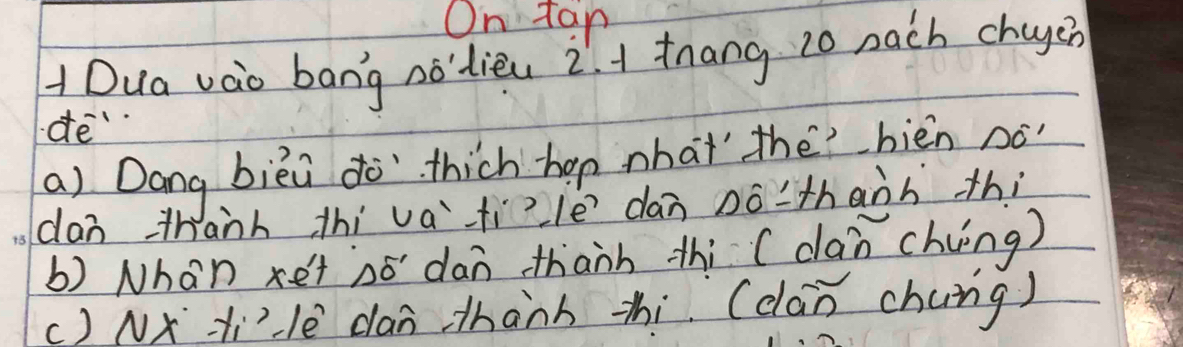 Ôn tập
1 Dựa vào bảng số liệu 2.1 trang 20 sách chuyên
đề:
a) Dạng biểu đồ thích hợp nhất thể hiện số
dân thành thị và tỉ lệ dân số thành thị
b) Nhận xét số dân thành thị (dẫn chứng)
c) NX tỉ lệ dân thành thị. (dẫn chứng)